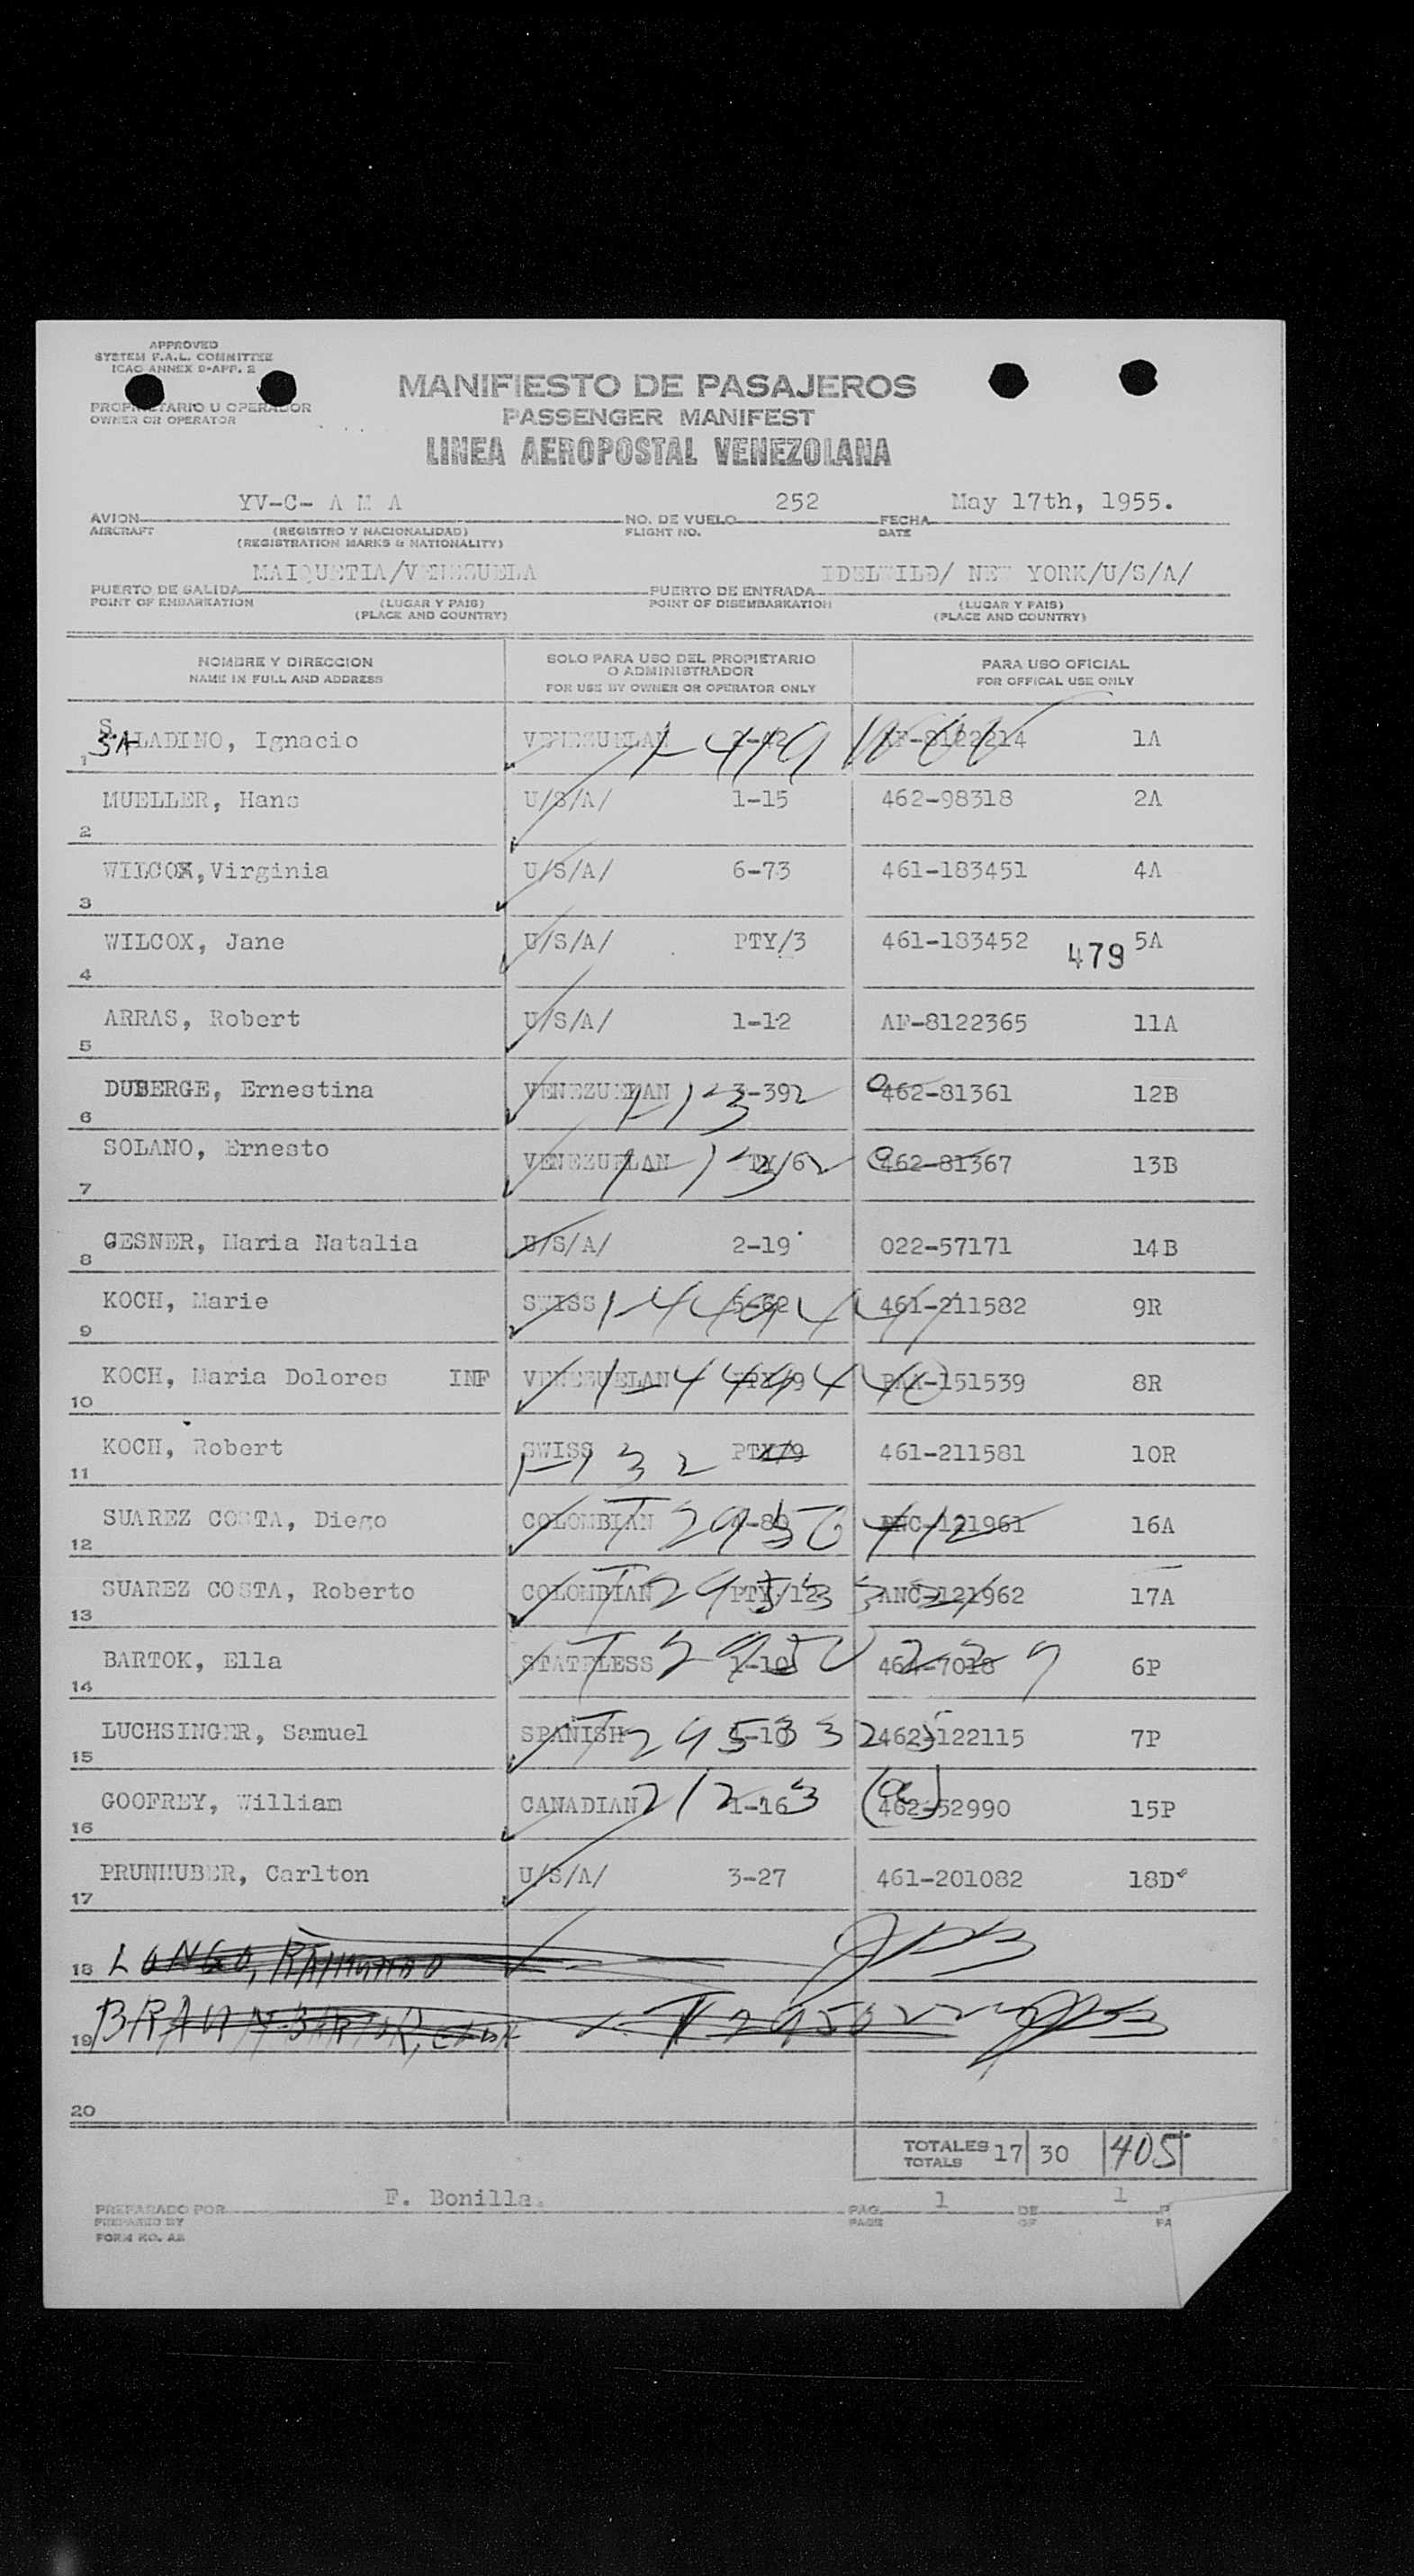 APPROVED
SYSTEM F.A.L. COMMITTEE
ICAO ANNEX 9-APP. 2
PROPIETARIO U OPERADOR
OWNER OR OPERATOR
MANIFIESTO DE PASAJEROS
PASSENGER MANIFEST
LINEA AEROPOSTAL VENEZOLANA
YV-C- A M A 252 May 17th, 1955.
AVION NO. DE VUELO FECHA
AIRCRAFT (REGISTRO Y NACIONALIDAD) FLIGHT NO. DATE
(REGISTRATION MARKS & NATIONALITY)
MAIQUETIA/VENEZUELA IDELWILD/ NEW YORK/U/S/A/
PUERTO DE SALIDA PUERTO DE ENTRADA
POINT OF EMBARKATION (LUGAR Y PAIS) POINT OF DISEMBARKATION (LUGAR Y PAIS)
(PLACE AND COUNTRY) (PLACE AND COUNTRY)
NOMBRE Y DIRECCION SOLO PARA USO DEL PROPIETARIO PARA USO OFICIAL
NAME IN FULL AND ADDRESS O ADMINISTRADOR FOR OFFICAL USE ONLY
FOR USE BY OWNER OR OPERATOR ONLY
1 SALADINO, Ignacio VENEZUELAN 2-42 AF-8122214 1A
2 MUELLER, Hans U/S/A/ 1-15 462-98318 2A
3 WILCOX,Virginia U/S/A/ 6-73 461-183451 4A
4 WILCOX, Jane U/S/A/ PTY/3 461-183452 479 5A
5 ARRAS, Robert U/S/A/ 1-12 AF-8122365 11A
6 DUBERGE, Ernestina VENEZUELAN 3-39 462-81361 12B
7 SOLANO, Ernesto VENEZUELAN PTY/6 462-81367 13B
8 GESNER, Maria Natalia U/S/A/ 2-19 022-57171 14B
9 KOCH, Marie SWISS 5-62 461-211582 9R
10 KOCH, Maria Dolores INF VENEZUELAN PTY/9 PAA-151539 8R
11 KOCH, Robert SWISS 1-132 PTY/9 461-211581 10R
12 SUAREZ COSTA, Diego COLOMBIAN 4-80 ANC-121961 16A
13 SUAREZ COSTA, Roberto COLOMBIAN PTY/12 ANC-121962 17A
14 BARTOK, Ella STATELESS 1-10 464-7018 6P
15 LUCHSINGER, Samuel SPANISH 1-10 462-122115 7P
16 GOOFREY, William CANADIAN 1-16 462-52990 15P
17 PRUNHUBER, Carlton U/S/A/ 3-27 461-201082 18D
18 LONGO, RAIMONDO
19 BRAUN-BARTOK,
20
TOTALES 17 30 405
TOTALS
F. Bonilla.
PREPARADO POR PAG. 1 DE 1
PREPARED BY PAGE OF PA
FORM NO. A2